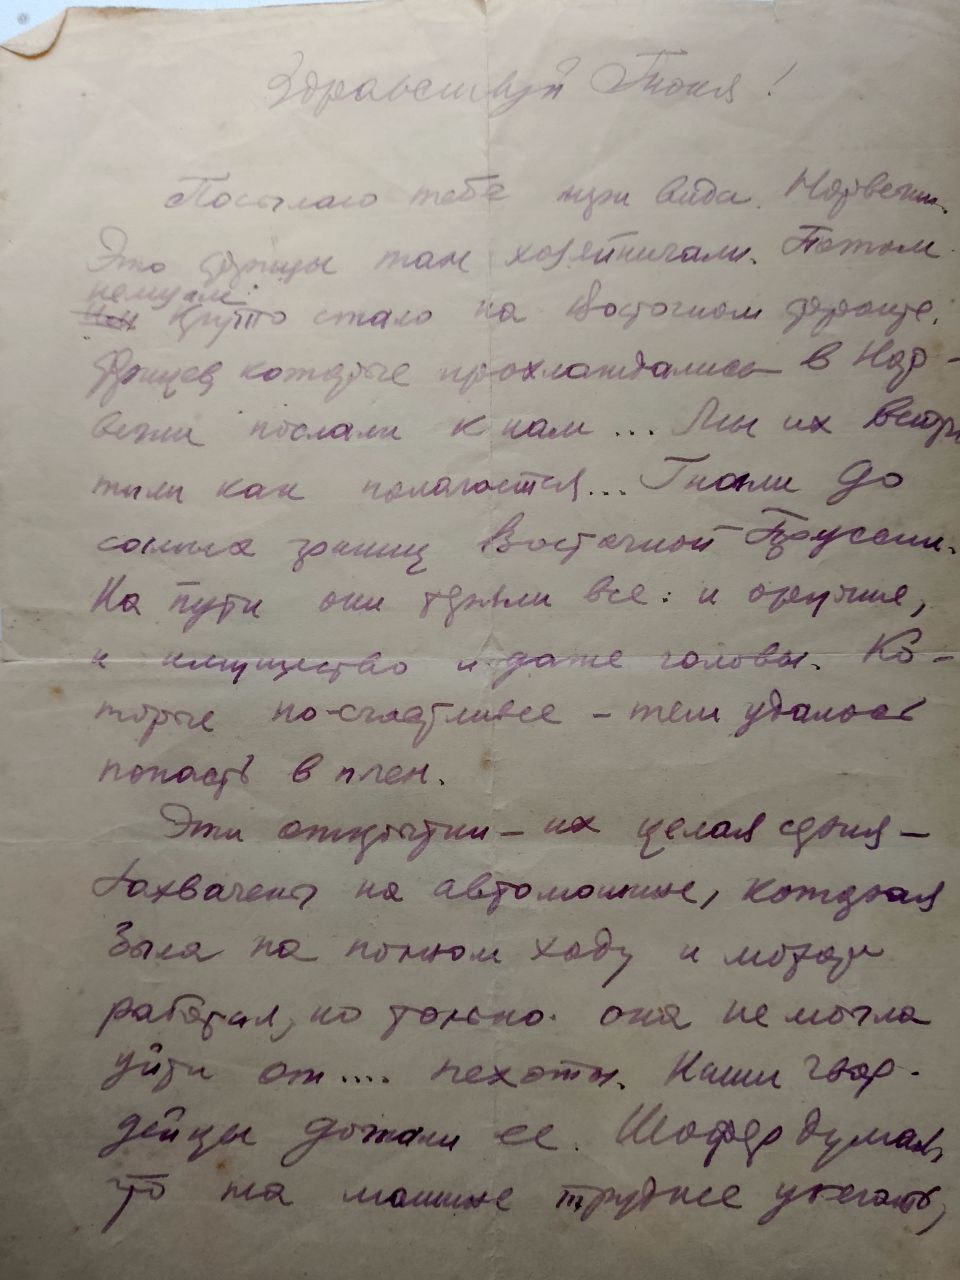 Здравствуй Тоня!
Посылаю тебе три вида Норвегии.
Это фрицы там хозяйничали. Потом
немцам
круто стало на Восточном фронте.
Фрицев которые прохлаждались в Нор-
вегии послали к нам... Мы их встре
тили как полагается... Гнали до
самых границ Восточной Пруссии.
На пути они теряли все: и оружие,
и имущество и даже головы. Ко-
торые по-счастливее - тем удалось
попасть в плен.
Эти открытки - их целая серия -
захвачены на автомашине, которая
была на полном ходу и мотор
работал, но только она не могла
уйти от.... пехоты. Наши гвар-
дейцы догнали ее. Шофер думал,
что на машине труднее убегать,